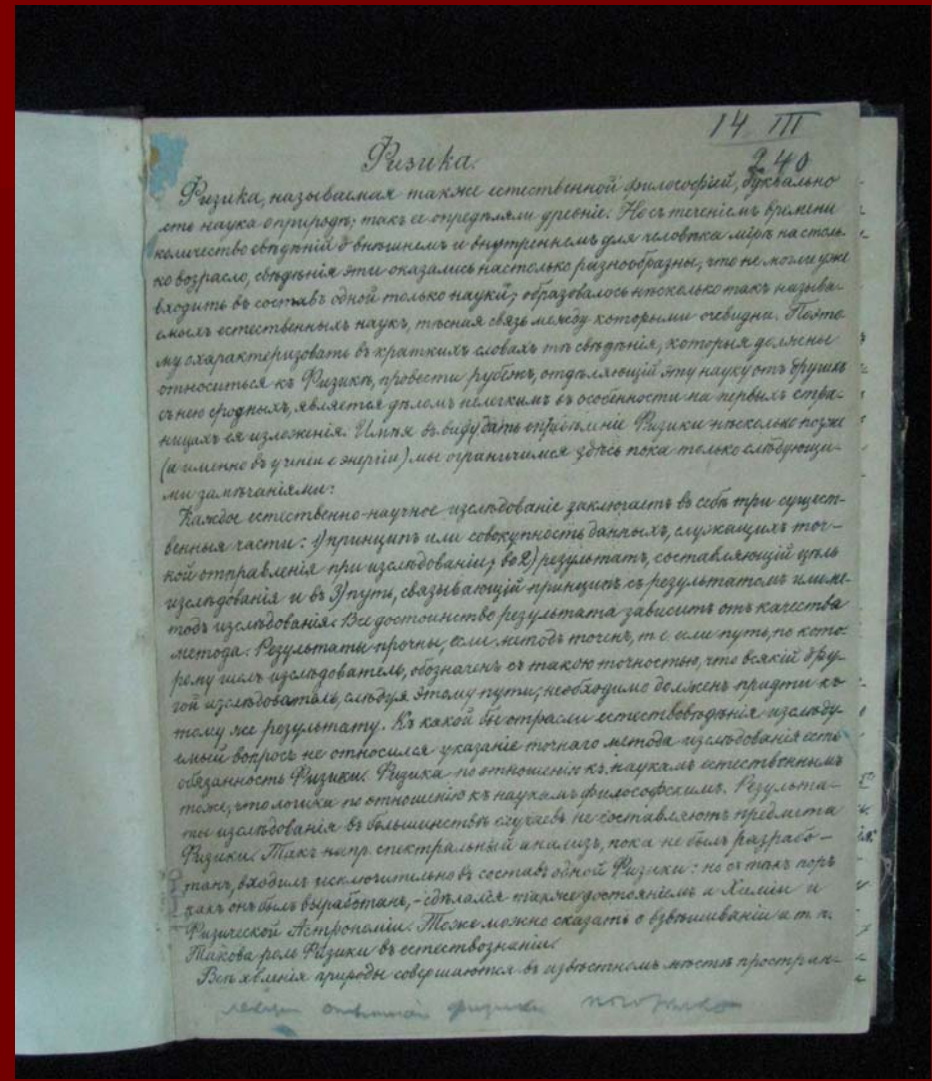 14 III
240
Физика.
Физика, называемая также естественной философіей, буквально
есть наука о природѣ; такъ ее опредѣляли древніе. Но съ теченіемъ времени
количество свѣдѣній о внѣшнемъ и внутреннемъ для человѣка мірѣ на столь-
ко возрасло, свѣдѣнія эти оказались настолько разнообразны, что не могли уже
входить въ составъ одной только науки; образовалось нѣсколько такъ называ-
емыхъ естественныхъ наукъ, тѣсная связь между которыми очевидна. Поэто
му охарактеризовать въ краткихъ словахъ тѣ свѣдѣнія, которыя должны
относиться къ Физикѣ, провести рубежъ, отдѣляющій эту науку отъ другихъ
съ нею сродныхъ, является дѣломъ нелегкимъ въ особенности на первыхъ стра-
ницахъ ея изложенія. Имѣя въ виду дать опредѣленіе Физики нѣсколько позже
(а именно въ ученіи о энергіи) мы ограничимся здѣсь пока только слѣдующи-
ми замѣчаніями:
Каждое естественно-научное изслѣдованіе заключаетъ въ себѣ три сущест-
венныя части: 1) принципъ или совокупность данныхъ, служащихъ точ-
кой отправленія при изслѣдованіи; во 2) результатъ, составляющій цѣль
изслѣдованія и въ 3) путь, связывающій принципъ съ результатомъ или ме-
тодъ изслѣдованія. Все достоинство результата зависитъ отъ качества
метода. Результаты прочны, если методъ точенъ, т. е. если путь, по кото-
рому шелъ изслѣдователь, обозначенъ съ такою точностью, что всякій дру-
гой изслѣдователь, слѣдуя этому пути, необходимо долженъ придти къ
тому же результату. Къ какой бы отрасли естествовѣдѣнія изслѣду-
емый вопросъ не относился указаніе точнаго метода изслѣдованія есть
обязанность Физики. Физика по отношенію къ наукамъ естественнымъ
тоже, что логика по отношенію къ наукамъ философскимъ. Результа-
ты изслѣдованія въ большинствѣ случаевъ не составляютъ предмета
Физики. Такъ напр. спектральный анализъ, пока не былъ разрабо-
танъ, входилъ исключительно въ составъ одной Физики: но съ тѣхъ поръ
какъ онъ былъ выработанъ, - сдѣлался также достояніемъ и Химіи и
Физической Астрономіи. Тоже можно сказать о взвѣшиваніи и т. п.
Такова роль Физики въ естествознаніи.
Всѣ явленія природы совершаются въ извѣстномъ мѣстѣ простран-
физики